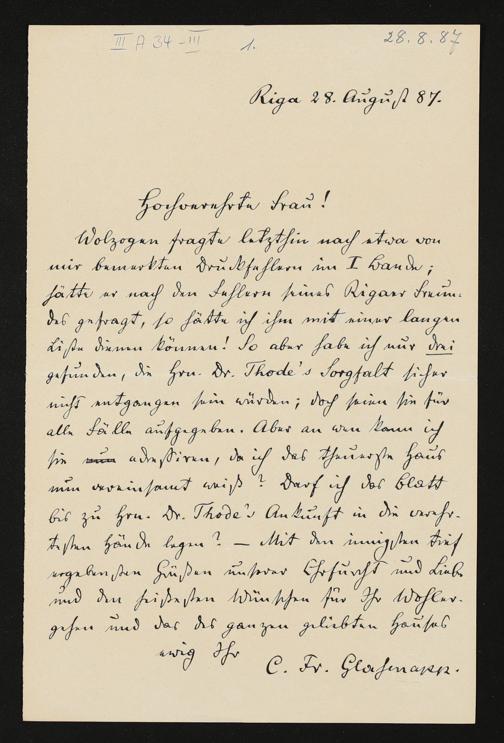 III A 34 - III 1. 28.8.87
Riga 28. August 87.
Hochverehrte Frau!
Wolzogen fragte letzthin nach etwa von
mir bemerkten Druckfehlern im I Bande;
hätte er nach den Fehlern seines Rigaer Freun-
des gefragt, so hätte ich ihm mit einer langen
Liste dienen können! So aber habe ich nur drei
gefunden, die Hrn. Dr. Thode's Sorgfalt sicher
nicht entgangen sein würden; doch seien sie für
alle Fälle aufgegeben. Aber an wen kann ich
sie nun adressiren, da ich das theuerste Haus
nun vereinsamt weiß? Darf ich das Blatt
bis zu Hrn. Dr. Thode's Ankunft in die verehr-
testen Hände legen? — Mit den innigsten tief
ergebensten Grüßen unserer Ehrfurcht und Liebe
und den heißesten Wünschen für Ihr Wohler-
gehen und das des ganzen geliebten Hauses
ewig Ihr
C. Fr. Glasenapp.